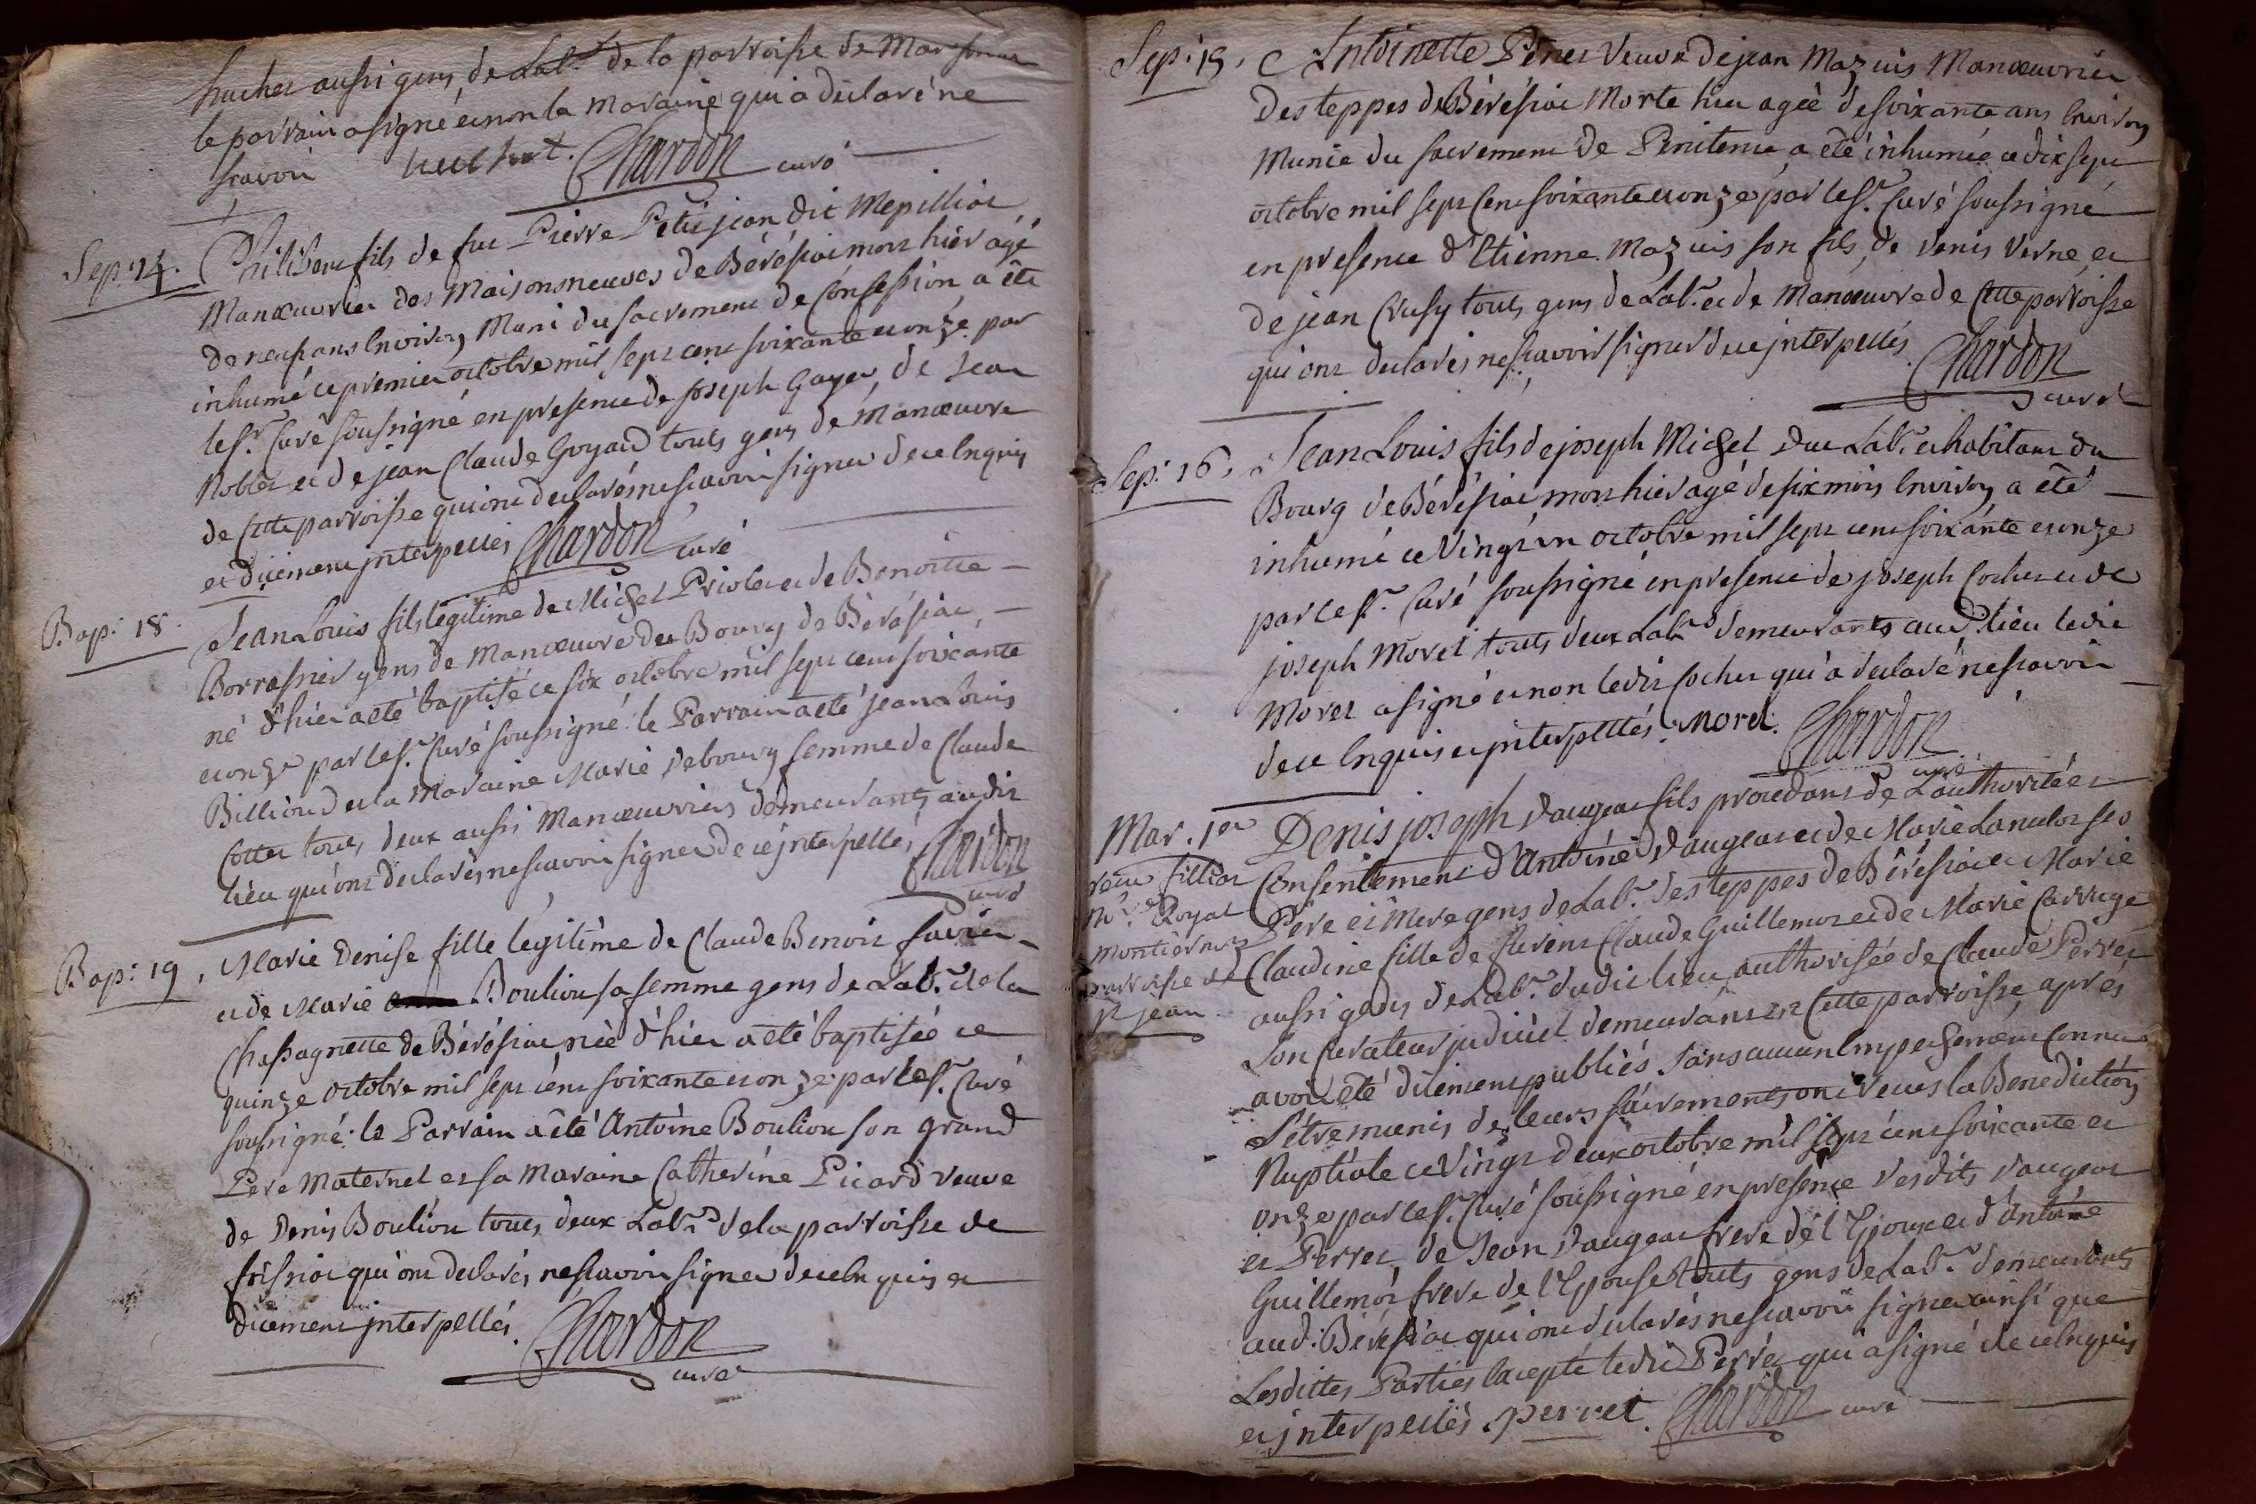 huchet aussi gens de Labr. de la parroisse de Marsonnas
le parrain a signé et non la maraine qui a declaré ne
scavoir huchet. Chardon curé
Sep: 14. Philibert fils de feu Pierre Petitjean dit Mepilliat
Manœuvrier des Maisonsneuves de Béréssiat mort hier agé
de neuf ans Environ Muni du sacrement de Confession a été
inhumé ce premier octobre mil sept cent soixante et onze par
le Sr. Curé soussigné en presence de joseph Goyer, de Jean
Noblet et de jean Claude Goyard touts gens de Manœuvre
de Cette parroisse qui ont declarés ne scavoir signer de ce Enquis
et düement jnterpellés Chardon curé
Bap: 18. Jean Louis fils legitime de Michel Priolet et de Benoitte
Borrasnier gens de Manœuvre du Bourg de Béréssiat,
né d'hier a eté baptisé ce six octobre mil sept cent soixante
et onze par le Sr. Curé soussigné. le Parrain a eté jean Louis
Billioud et la Maraine Marie Debourg femme de Claude
Cottet touts deux aussi Manœuvriers demeurants audit
lieu qui ont declarés ne scavoir signer de ce jnterpellés Chardon
curé
Bap: 19. Marie Denise fille legitime de Claude Benoit favier
et de Marie Bouliou sa femme gens de Labr. de la
Chassagnette de Béréssiat née d'hier a eté baptisée ce
quinze octobre mil sept cent soixante et onze par le Sr. Curé
soussigné. le Parrain a été Antoine Bouliou son grand
Pere Maternel et sa Maraine Catherine Picard veuve
de Denis Bouliou touts deux Labrs. de la parroisse de
foissiat qui ont declarés ne scavoir signer de ce Enquis et
düement jnterpellés. Chardon
curé
Sep: 15. Antoinette Peney Veuve de jean Mazuis Manœuvrier
des teppes de Béréssiat Morte hier agée de soixante ans Environ
Munie du sacrement de Penitence a été inhumée ce dix sept
octobre mil sept Cent soixante et onze par le Sr. Curé soussigné
en presence d'Etienne Mazuis son fils, de Denis Verne, et
de jean Crusy touts gens de Labr. et de Manœuvre de Cette parroisse
qui ont declarés ne scavoir signer de ce jnterpellés. Chardon
curé
Sep: 16. Jean Louis fils de joseph Michel Duc Labr. et habitant du
Bourg de Béréssiat mort hier agé de six mois Environ a été
inhumé ce Vingt un octobre mil sept cent soixante et onze
par le Sr. Curé soussigné en presence de joseph Cochet et de
joseph Morel touts deux Labrs. demeurants aud. lieu ledit
Morel a signé et non ledit Cochet qui a declaré ne scavoir
de ce Enquis et jnterpellés. Morel. Chardon
curé
Mar. 1er Denis joseph Daugeat fils procedant de L'authorité et
Consentement d'Antoine Daugeat et de Marie Lancelot ses
Pere et Mere gens de Labr. des teppes de Béréssiat et Marie
Claudine fille de furent Claude Guillemot et de Marie Carruge
aussi gens de Labr. dudit lieu authorisée de Claude Perret
Son Curateur judiciel demeurant en Cette parroisse, aprés
avoir eté düement publiés sans aucun Empechement Connu
S'être munis de leurs sacrements ont reçus la Benediction
Nuptiale ce Vingt deux octobre mil sept cent soixante et
onze par le Sr. Curé soussigné en presence desdits Daugeat
et Perret, de Jean Daugeat frere de l'Epoux et d'Antoine
Guillemot frere de l'Epouse touts gens de Labr. demeurants
aud. Béréssiat qui ont declarés ne scavoir signer ainsi que
Lesdittes Parties Excepté ledit Perret qui a signé de ce Enquis
et jnterpellés. perret. Chardon curé
Royat
parroisse de
St jean